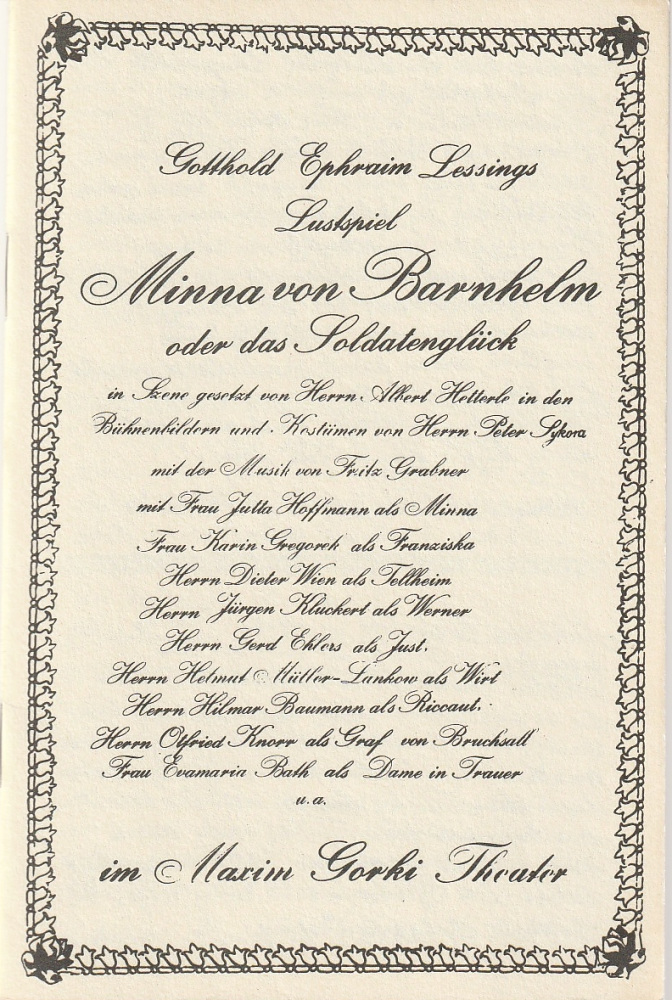 Gotthold Ephraim Lessings
Lustspiel
Minna von Barnhelm
oder das Soldatenglück
in Szene gesetzt von Herrn Albert Hetterle in den
Bühnenbildern und Kostümen von Herrn Peter Sykora
mit der Musik von Fritz Grabner
mit Frau Jutta Hoffmann als Minna
Frau Karin Gregorek als Franziska
Herrn Dieter Wien als Tellheim
Herrn Jürgen Kluckert als Werner
Herrn Gerd Ehlers als Just.
Herrn Helmut Müller-Lankow als Wirt
Herrn Hilmar Baumann als Riccaut.
Herrn Olfried Knorr als Graf von Bruchsall
Frau Evamaria Bath als Dame in Trauer
u.a.
im Maxim Gorki Theater